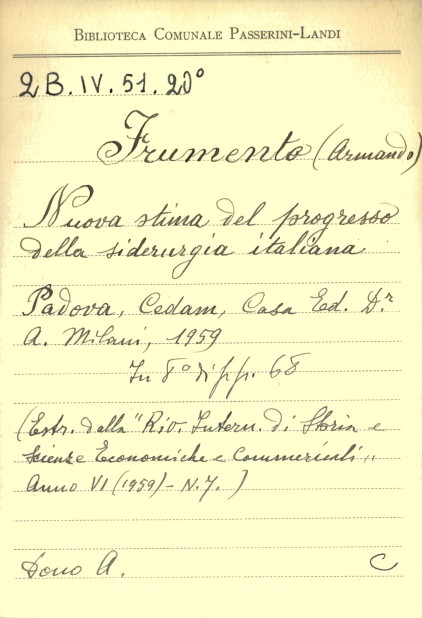 BIBLIOTECA COMUNALE PASSERINI-LANDI
2 B. IV. 51. 20°
Frumento (Armando)
Nuova stima del progresso
della siderurgia italiana
Padova, Cedam, Casa Ed. D.r
A. Milani, 1959
In 8° di pp. 68
(Estr. dalla "Riv. Intern. di Storia e
Scienze Economiche e Commerciali,,
Anno VI (1959) - N. 7. )
Dono A. C